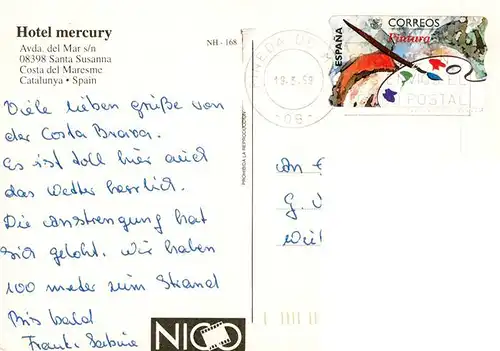 Hotel mercury
Avda. del Mar s/n
08398 Santa Susanna
Costa del Maresme
Catalunya • Spain
NH - 168
Viele lieben grüße von
der Costa Brava.
Es ist toll hier auch
das Wetter herrlich.
Die Anstrengung hat
sich geloht. Wir haben
100 meter zum Strand
Bis bald
Frank Sabine
PROHIBIDA LA REPRODUCCION
NICO
ESPAÑA
CORREOS
Pintura
PINEDA DE
POSTAL
-08-
An
G.